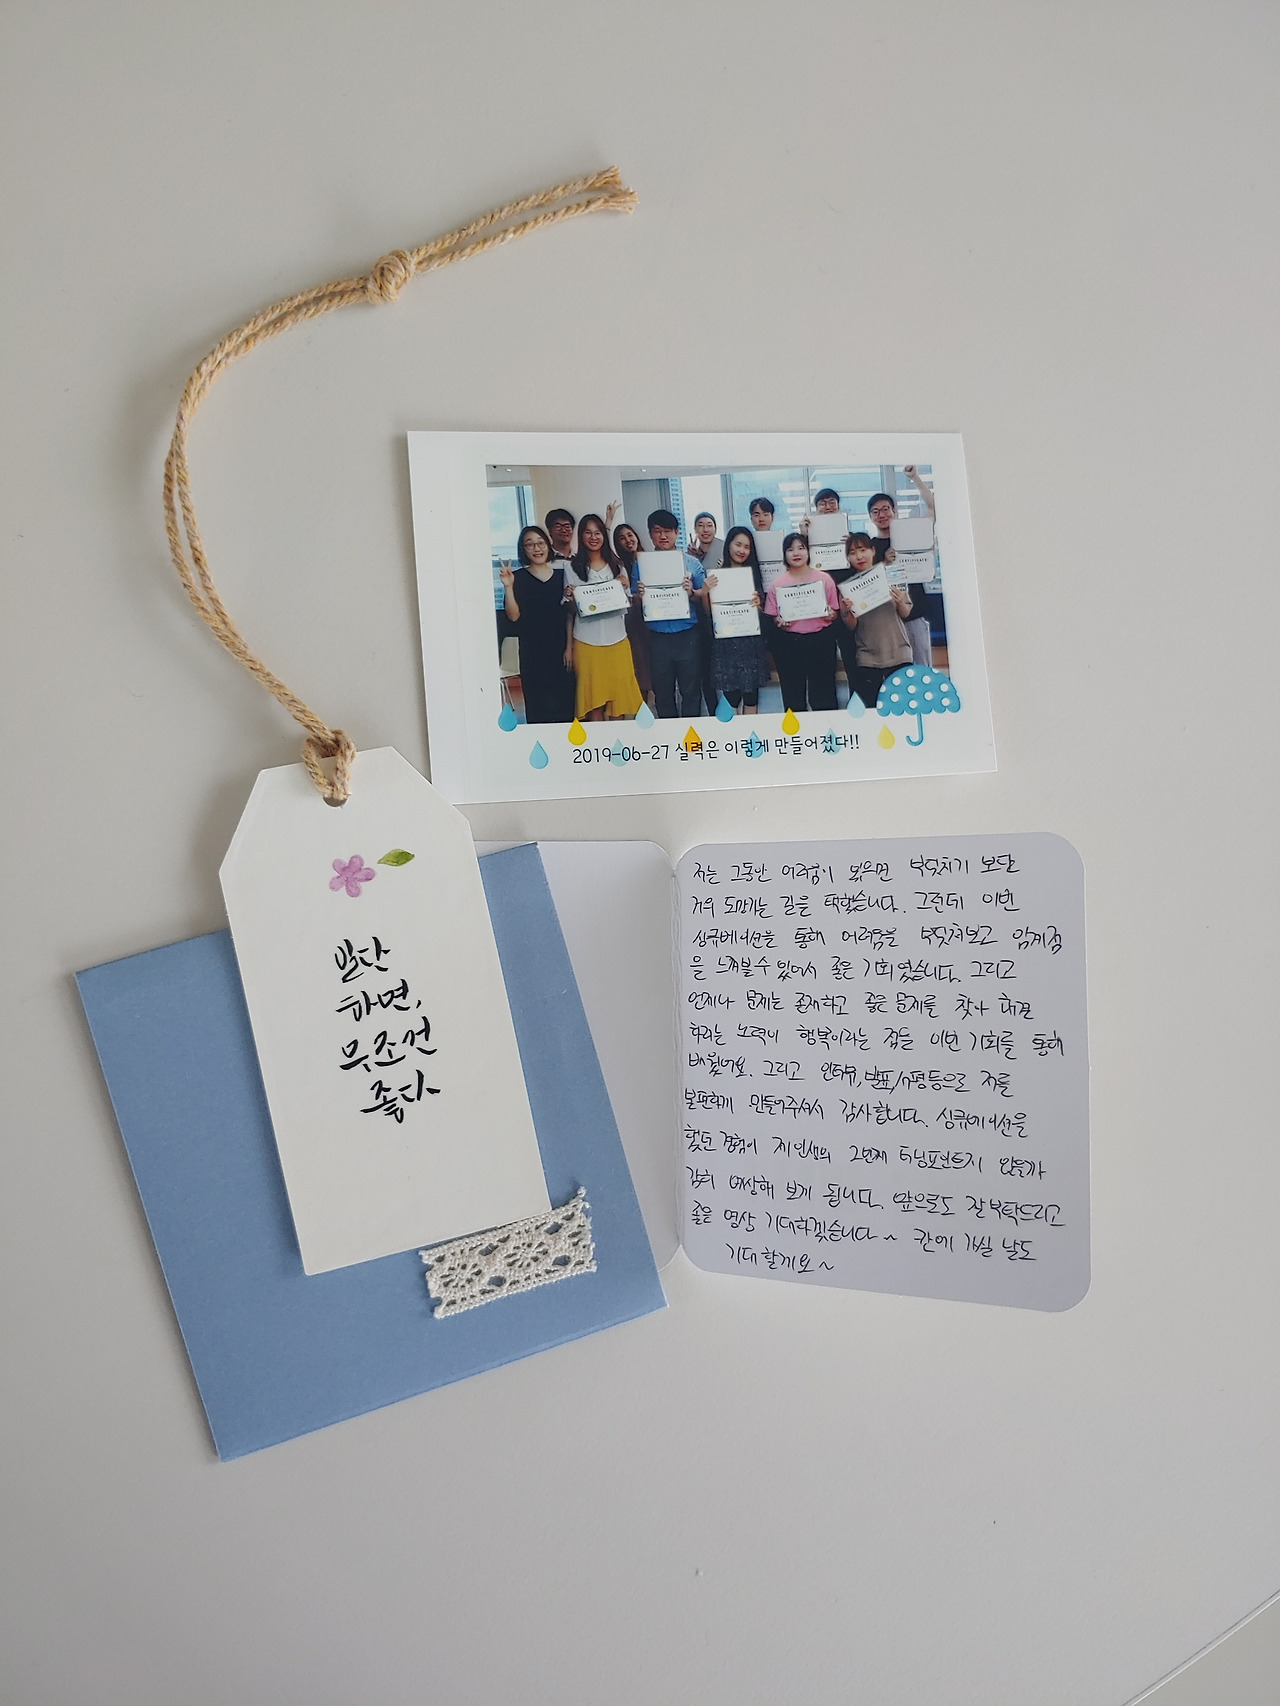 CERTIFICATE
CERTIFICATE
CERTIFICATE
CERTIFICATE
CERTIFICATE
2019-06-27 실력은 이렇게 만들어졌다!!
일단
하면,
무조건
좋다
저는 그동안 어려움이 있으면 부딪치기 보단
거의 도망가는 길을 택했습니다. 그런데 이번
싱큐베이션을 통해 어려움을 부딪쳐보고 임계점
을 느껴볼 수 있어서 좋은 기회였습니다. 그리고
언제나 문제는 존재하고 좋은 문제를 찾아 해결
하려는 노력이 행복이라는 점을 이번 기회를 통해
배웠어요. 그리고 인터뷰, 발표, 서평등으로 저를
불편하게 만들어주셔서 감사합니다. 싱큐베이션을
했던 경험이 제 인생의 2번째 터닝포인트지 않을까
감히 예상해 보게 됩니다. 앞으로도 잘 부탁드리고
좋은 영상 기대하겠습니다~ 칸에 가실 날도
기대할게요~